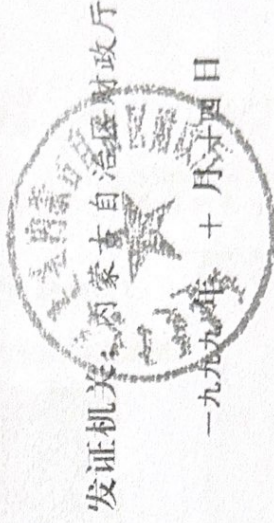 发证机关：内蒙古自治区财政厅
一九九九年 十 月廿四日